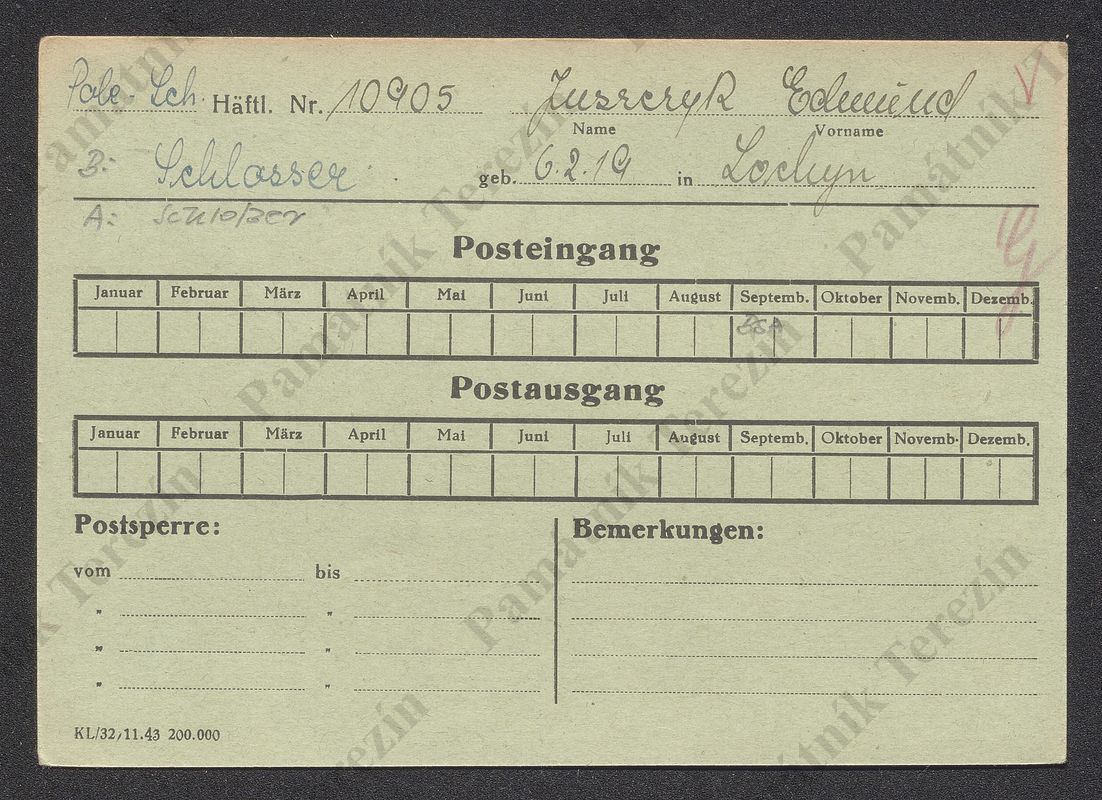 Pole Sch. Häftl. Nr. 10905 Juszczyk Edmund
Name Vorname
B: Schlosser geb. 6.2.19 in Lochyn
A: Schlosser
Posteingang
Januar Februar März April Mai Juni Juli August Septemb. Oktober Novemb. Dezemb.
Postausgang
Januar Februar März April Mai Juni Juli August Septemb. Oktober Novemb. Dezemb.
Postsperre: Bemerkungen:
vom bis
" "
" "
" "
KL/32, 11.43 200.000
Památník Terezín